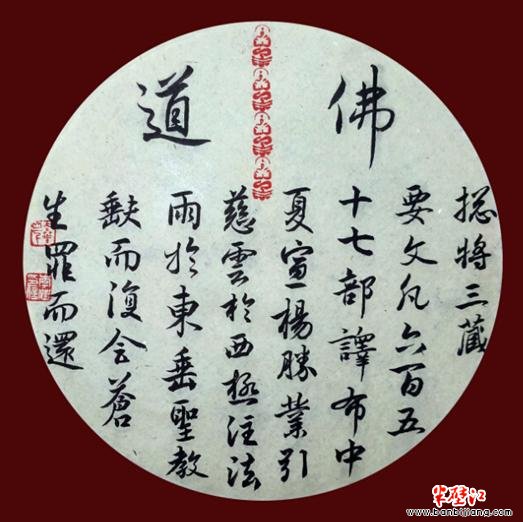 佛道
揔将三藏
要文凡六百五
十七部譯布中
夏宣楊勝業引
慈雲於西極注法
雨於東垂聖教
缺而復全蒼
生罪而還
半壁江
www.banbijiang.com